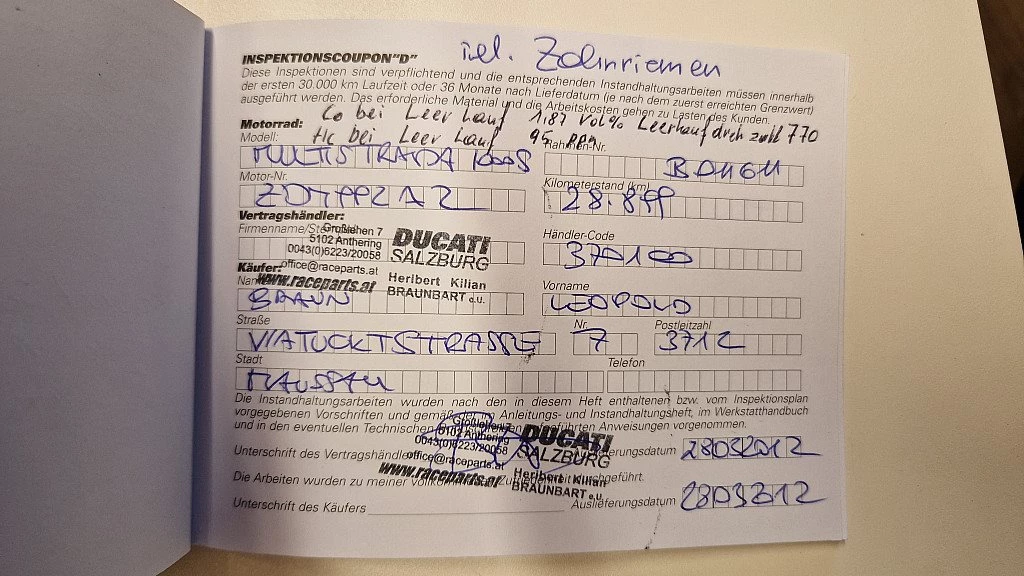 INSPEKTIONSCOUPON"D" incl. Zahnriemen
Diese Inspektionen sind verpflichtend und die entsprechenden Instandhaltungsarbeiten müssen innerhalb
der ersten 30.000 km Laufzeit oder 36 Monate nach Lieferdatum (je nach dem zuerst erreichten Grenzwert)
ausgeführt werden. Das erforderliche Material und die Arbeitskosten gehen zu Lasten des Kunden.
Co bei Leer Lauf 1.87 Vol% Leerlaufdrehzahl 770
Motorrad: Hc bei Leer Lauf 95 ppm
Modell: Rahmen-Nr.
MULTISTRADA 1000S
Motor-Nr. Kilometerstand (km)
28.899
Vertragshändler:
Firmenname/Stempel Händler-Code
Großlehen 7
5102 Anthering
0043(0)6223/20058
office@raceparts.at
www.raceparts.at
DUCATI
SALZBURG
Heribert Kilian
BRAUNBART e.U.
370100
Käufer:
Name Vorname
BRAUN LEOPOLD
Straße Nr. Postleitzahl
7 3712
Stadt Telefon
MAUSSAU
Die Instandhaltungsarbeiten wurden nach den in diesem Heft enthaltenen bzw. vom Inspektionsplan
vorgegebenen Vorschriften und gemäß den in Anleitungs- und Instandhaltungsheft, im Werkstatthandbuch
und in den eventuellen Technischen aufgeführten Anweisungen vorgenommen.
Großlehen 7
5102 Anthering
0043(0)6223/20058
office@raceparts.at
www.raceparts.at
DUCATI
SALZBURG
Heribert Kilian
BRAUNBART e.U.
Unterschrift des Vertragshändlers Auslieferungsdatum 28032012
Die Arbeiten wurden zu meiner vollkommenen Zufriedenheit durchgeführt.
Unterschrift des Käufers Auslieferungsdatum 28032012